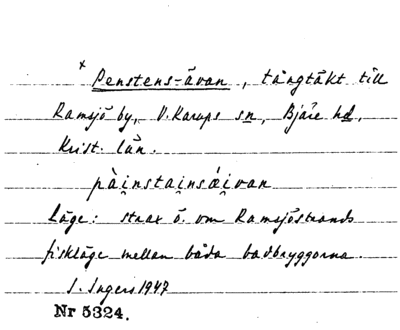 x Penstens-ävan, tångtäkt till
Ramsjö by, V. Karups sn, Bjäre hd,
Krist. län.
pài̯nstai̯nsǽi̯van
Läge: strax ö. om Ramsjöstrands
fiskläge mellan båda badbryggorna.
I. Ingers 1947
Nr 5324.